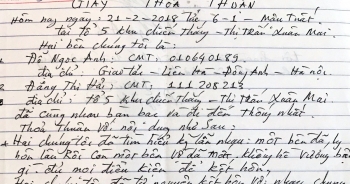 GIẤY THỎA THUẬN
Hôm nay, ngày: 21-2-2018 tức, 6-1- Mậu Tuất.
Tại tổ 5 khu chiến Thắng - Thị trấn Xuân Mai.
Hai bên chúng tôi là:
1 Đỗ Ngọc Anh: CMT: 010640189.
địa chỉ: Giao Tác - Liên Hà - Đông Anh - Hà nội.
2 Đặng Thị Hải: CMT: 111208213
địa chỉ: tổ 5 khu chiến Thắng - Thị trấn Xuân Mai
đã cùng nhau bàn bạc và đi đến thống nhất.
Thỏa thuận về nội dung như sau:
+ Hai chúng tôi đã tìm hiểu kỹ lẫn nhau: một bên đã ly
hôn lâu rồi còn một bên vợ đã mất, không bị vướng bận
gì. đủ mọi điều kiện để kết hôn,
kết hôn về nhau chung